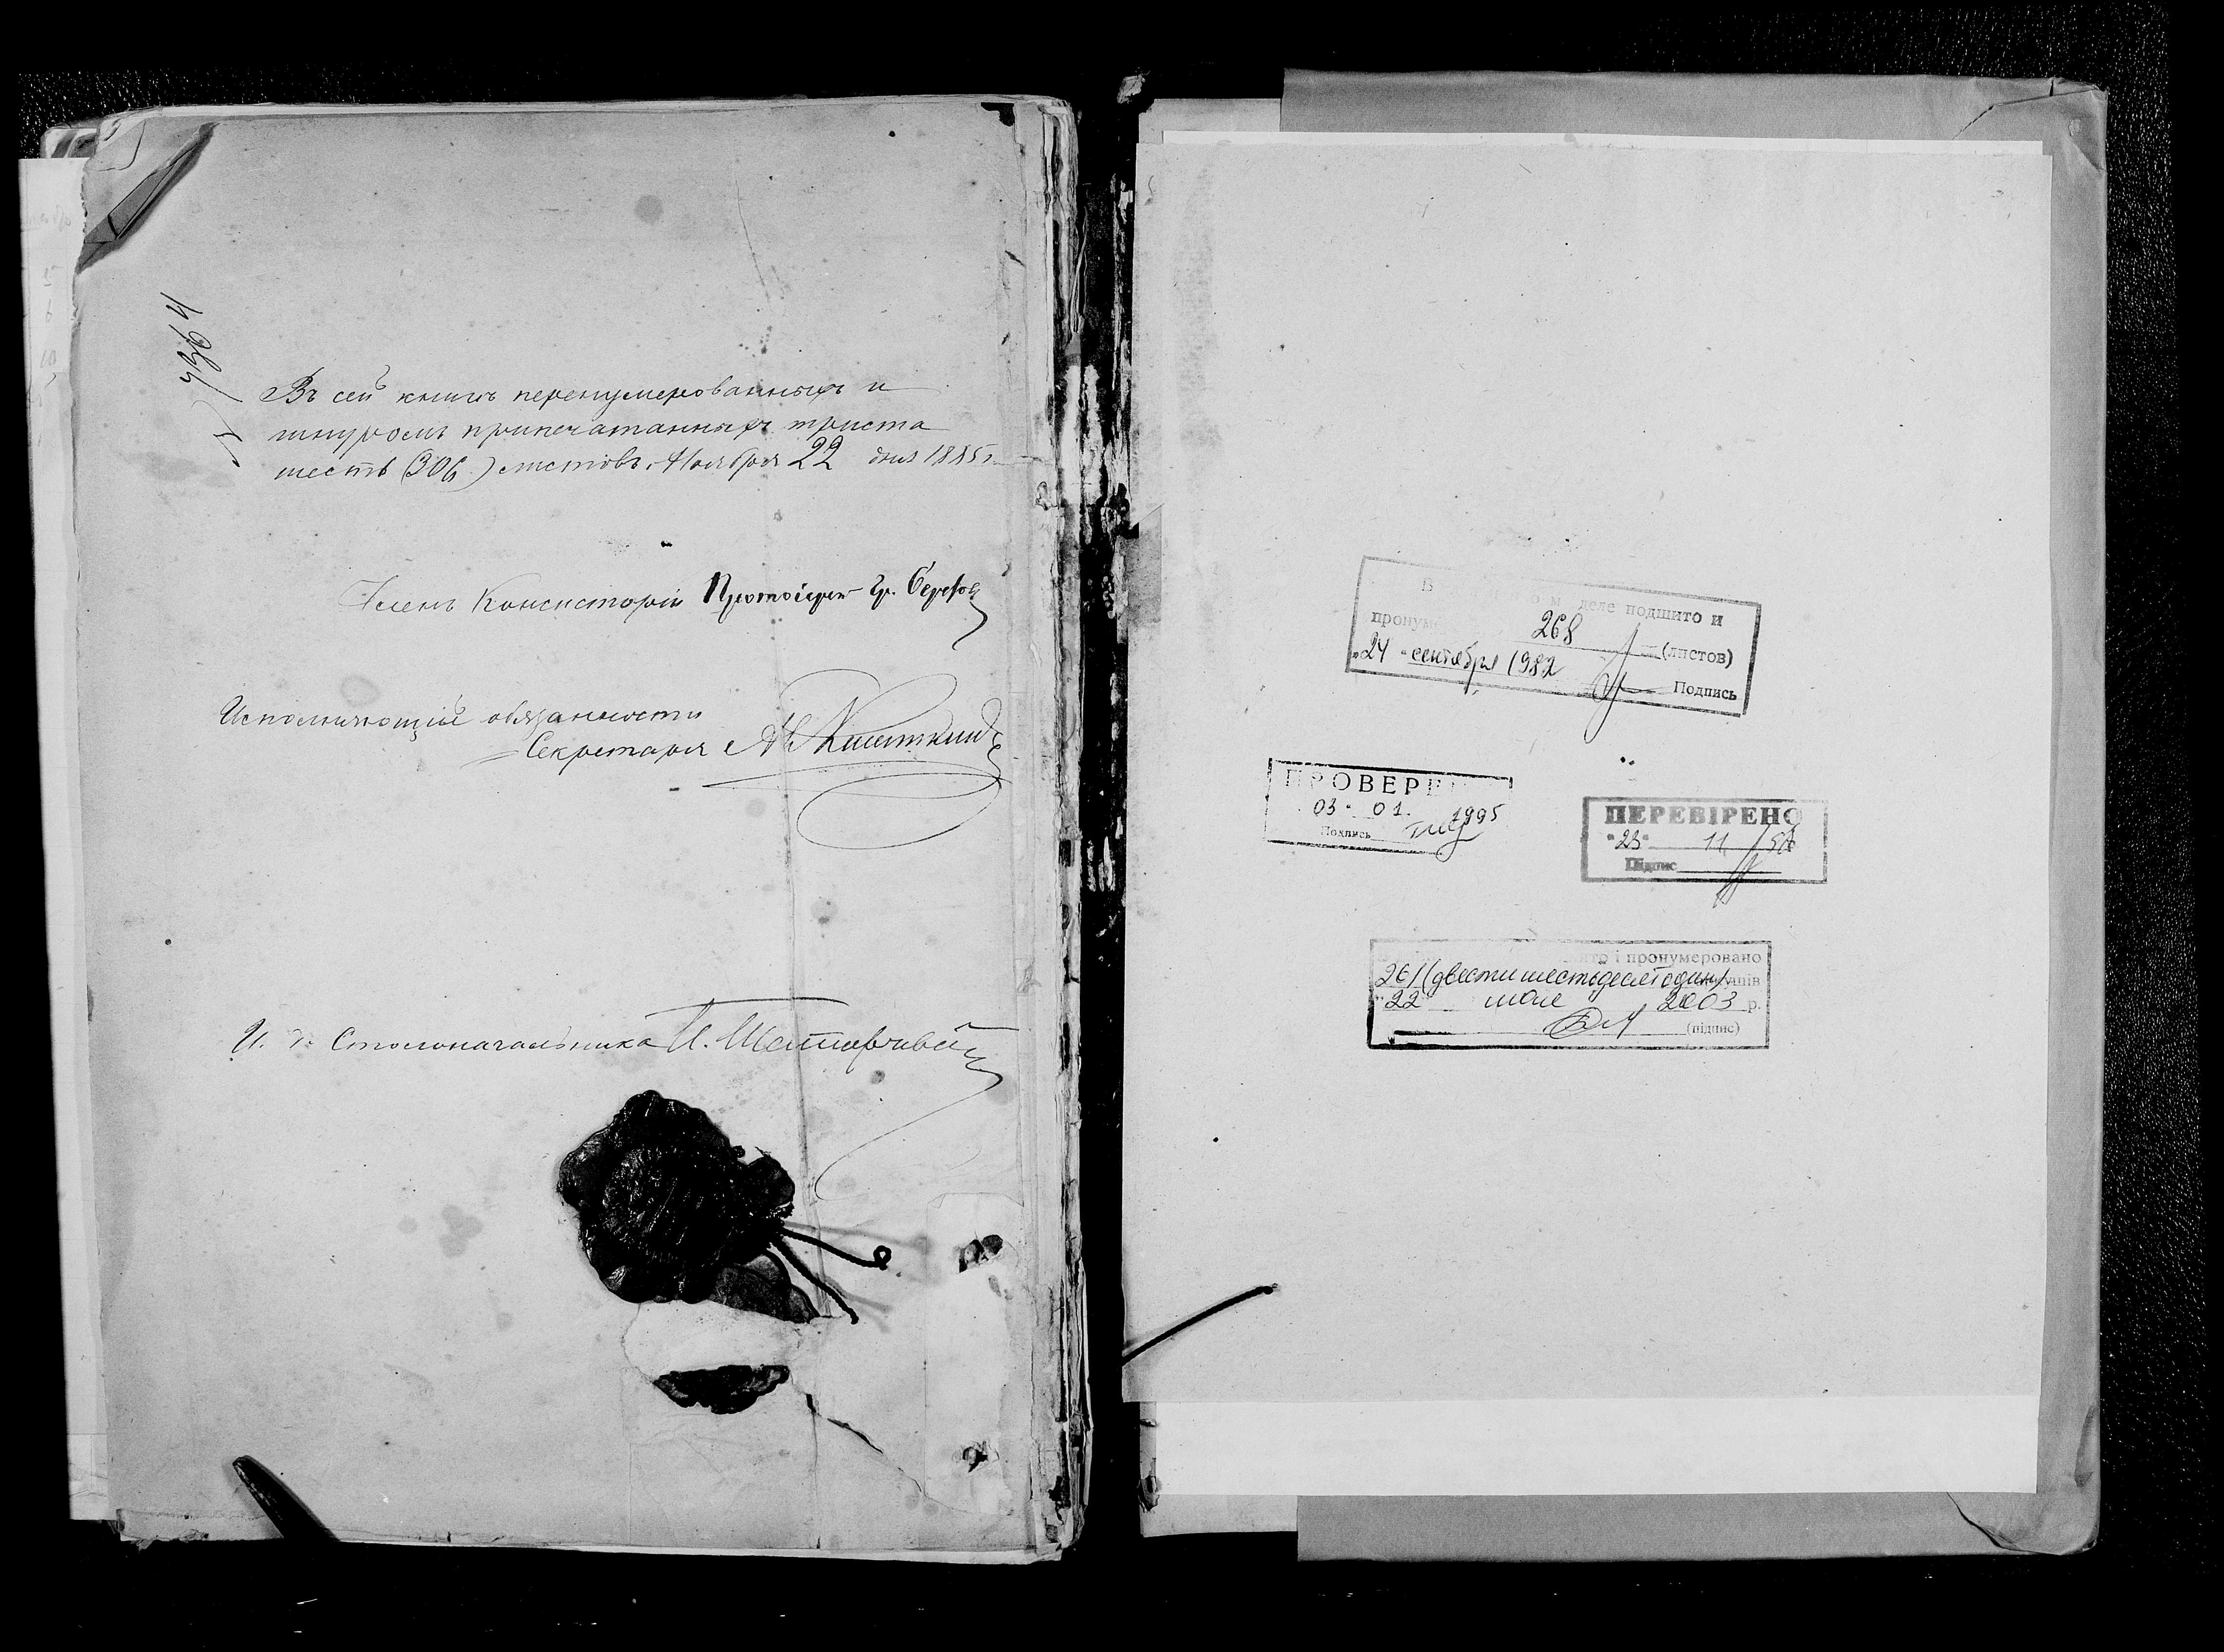 № 7364
Въ сей книгѣ перенумерованныхъ и
шнуромъ припечатанныхъ триста
шесть (306) листовъ. Ноября 22 дня 1885 г.
Членъ Консисторіи Протоіерей Гр.
Исполняющій обязанности
Секретаря
И. д. Столоначальника
деле подшито и
268 (листов)
"24" сентября 1982
Подпись
ПРОВЕРЕ
03 01. 1995
Подпись
ПЕРЕВІРЕНО
"23" 11
Підпис
і пронумеровано
261 (двести шестьдесят один)
"22" мая 2003 р.
(підпис)